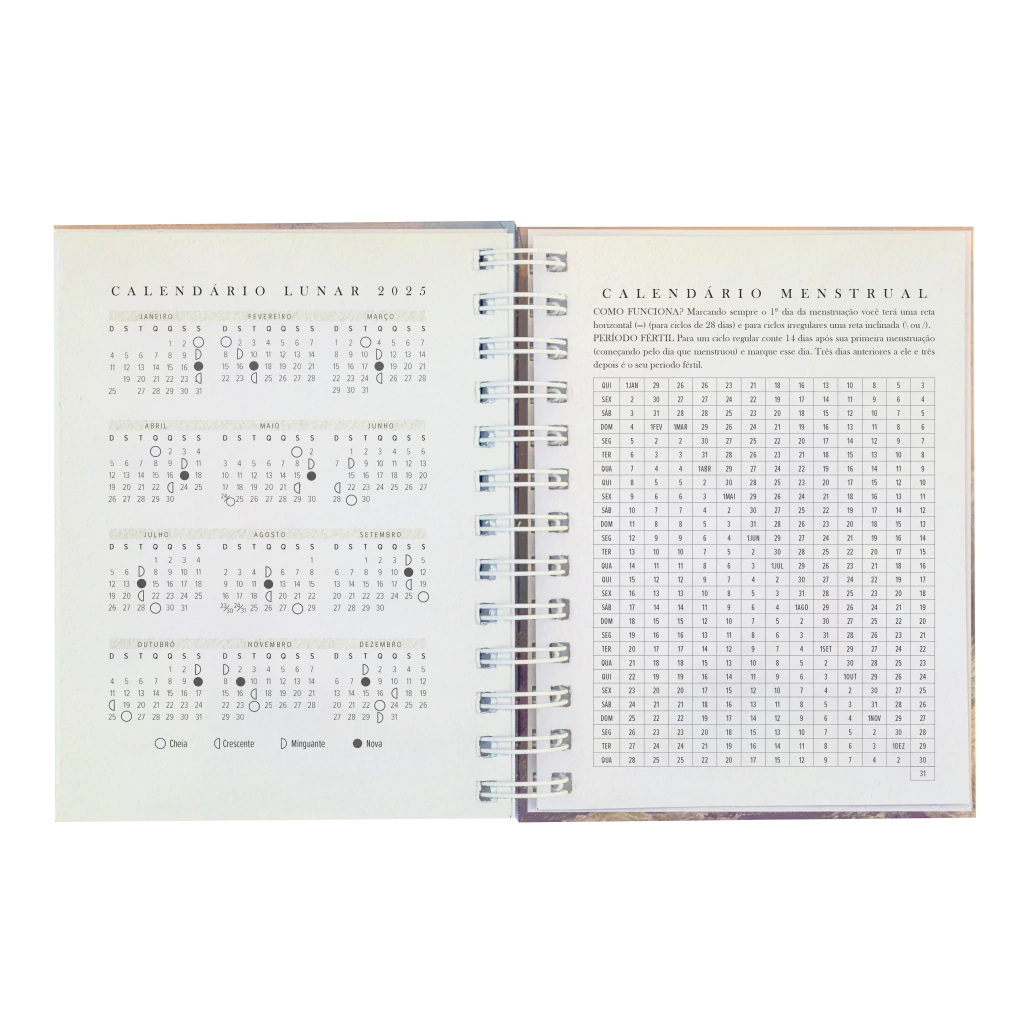 CALENDÁRIO LUNAR 2025
JANEIRO FEVEREIRO MARÇO
D S T Q Q S S D S T Q Q S S D S T Q Q S S
1 2 2 3 4 5 6 7 1 2 3 4 5 6
4 5 6 7 8 9 8 9 11 12 13 14 7 8 9 11 12 13
11 12 13 14 15 16 15 16 18 19 20 21 15 16 17 18 20
19 20 21 22 23 22 23 25 26 27 28 22 23 24 25 26 27 28
25 27 28 29 30 31 29 30 31
ABRIL MAIO JUNHO
D S T Q Q S S D S T Q Q S S D S T Q Q S S
2 3 4 2 1 2 3 4 5 6
5 6 7 8 9 11 3 4 5 6 7 8 7 9 10 11 12 13
12 13 14 15 16 18 10 11 12 13 14 15 15 16 17 18 19 20
19 20 21 22 24 25 17 18 19 20 21 22 22 23 24 25 26 27
26 27 28 29 30 25 26 27 28 29 30 28 30
JULHO AGOSTO SETEMBRO
D S T Q Q S S D S T Q Q S S D S T Q Q S S
1 2 3 4 1 1 2 3 5
5 6 8 9 10 11 2 3 4 6 7 8 6 7 8 9 10 12
12 13 15 16 17 18 9 10 11 13 14 15 13 14 15 16 17 19
19 20 21 22 23 24 25 16 17 18 19 21 22 20 21 22 23 24 25
26 27 28 30 31 23/30 24/31 25 26 27 29 27 28 29 30
OUTUBRO NOVEMBRO DEZEMBRO
D S T Q Q S S D S T Q Q S S D S T Q Q S S
1 2 2 3 4 5 6 7 1 2 3 4 5
4 5 6 7 8 9 8 10 11 12 13 14 6 7 9 10 11 12
11 12 13 14 15 16 17 15 16 18 19 20 21 13 14 15 16 18 19
19 20 21 22 23 24 22 23 25 26 27 28 20 21 22 24 25 26
25 27 28 29 30 31 29 30 27 28 29 31
Cheia Crescente Minguante Nova
CALENDÁRIO MENSTRUAL
COMO FUNCIONA? Marcando sempre o 1º dia da menstruação você terá uma reta
horizontal (–) (para ciclos de 28 dias) e para ciclos irregulares uma reta inclinada (\ ou /).
PERÍODO FÉRTIL Para um ciclo regular conte 14 dias após sua primeira menstruação
(começando pelo dia que menstruou) e marque esse dia. Três dias anteriores a ele e três
depois é o seu período fértil.
QUI 1JAN 29 26 26 23 21 18 16 13 10 8 5 3
SEX 2 30 27 27 24 22 19 17 14 11 9 6 4
SÁB 3 31 28 28 25 23 20 18 15 12 10 7 5
DOM 4 1FEV 1MAR 29 26 24 21 19 16 13 11 8 6
SEG 5 2 2 30 27 25 22 20 17 14 12 9 7
TER 6 3 3 31 28 26 23 21 18 15 13 10 8
QUA 7 4 4 1ABR 29 27 24 22 19 16 14 11 9
QUI 8 5 5 2 30 28 25 23 20 17 15 12 10
SEX 9 6 6 3 1MAI 29 26 24 21 18 16 13 11
SÁB 10 7 7 4 2 30 27 25 22 19 17 14 12
DOM 11 8 8 5 3 31 28 26 23 20 18 15 13
SEG 12 9 9 6 4 1JUN 29 27 24 21 19 16 14
TER 13 10 10 7 5 2 30 28 25 22 20 17 15
QUA 14 11 11 8 6 3 1JUL 29 26 23 21 18 16
QUI 15 12 12 9 7 4 2 30 27 24 22 19 17
SEX 16 13 13 10 8 5 3 31 28 25 23 20 18
SÁB 17 14 14 11 9 6 4 1AGO 29 26 24 21 19
DOM 18 15 15 12 10 7 5 2 30 27 25 22 20
SEG 19 16 16 13 11 8 6 3 31 28 26 23 21
TER 20 17 17 14 12 9 7 4 1SET 29 27 24 22
QUA 21 18 18 15 13 10 8 5 2 30 28 25 23
QUI 22 19 19 16 14 11 9 6 3 1OUT 29 26 24
SEX 23 20 20 17 15 12 10 7 4 2 30 27 25
SÁB 24 21 21 18 16 13 11 8 5 3 31 28 26
DOM 25 22 22 19 17 14 12 9 6 4 1NOV 29 27
SEG 26 23 23 20 18 15 13 10 7 5 2 30 28
TER 27 24 24 21 19 16 14 11 8 6 3 1DEZ 29
QUA 28 25 25 22 20 17 15 12 9 7 4 2 30
31